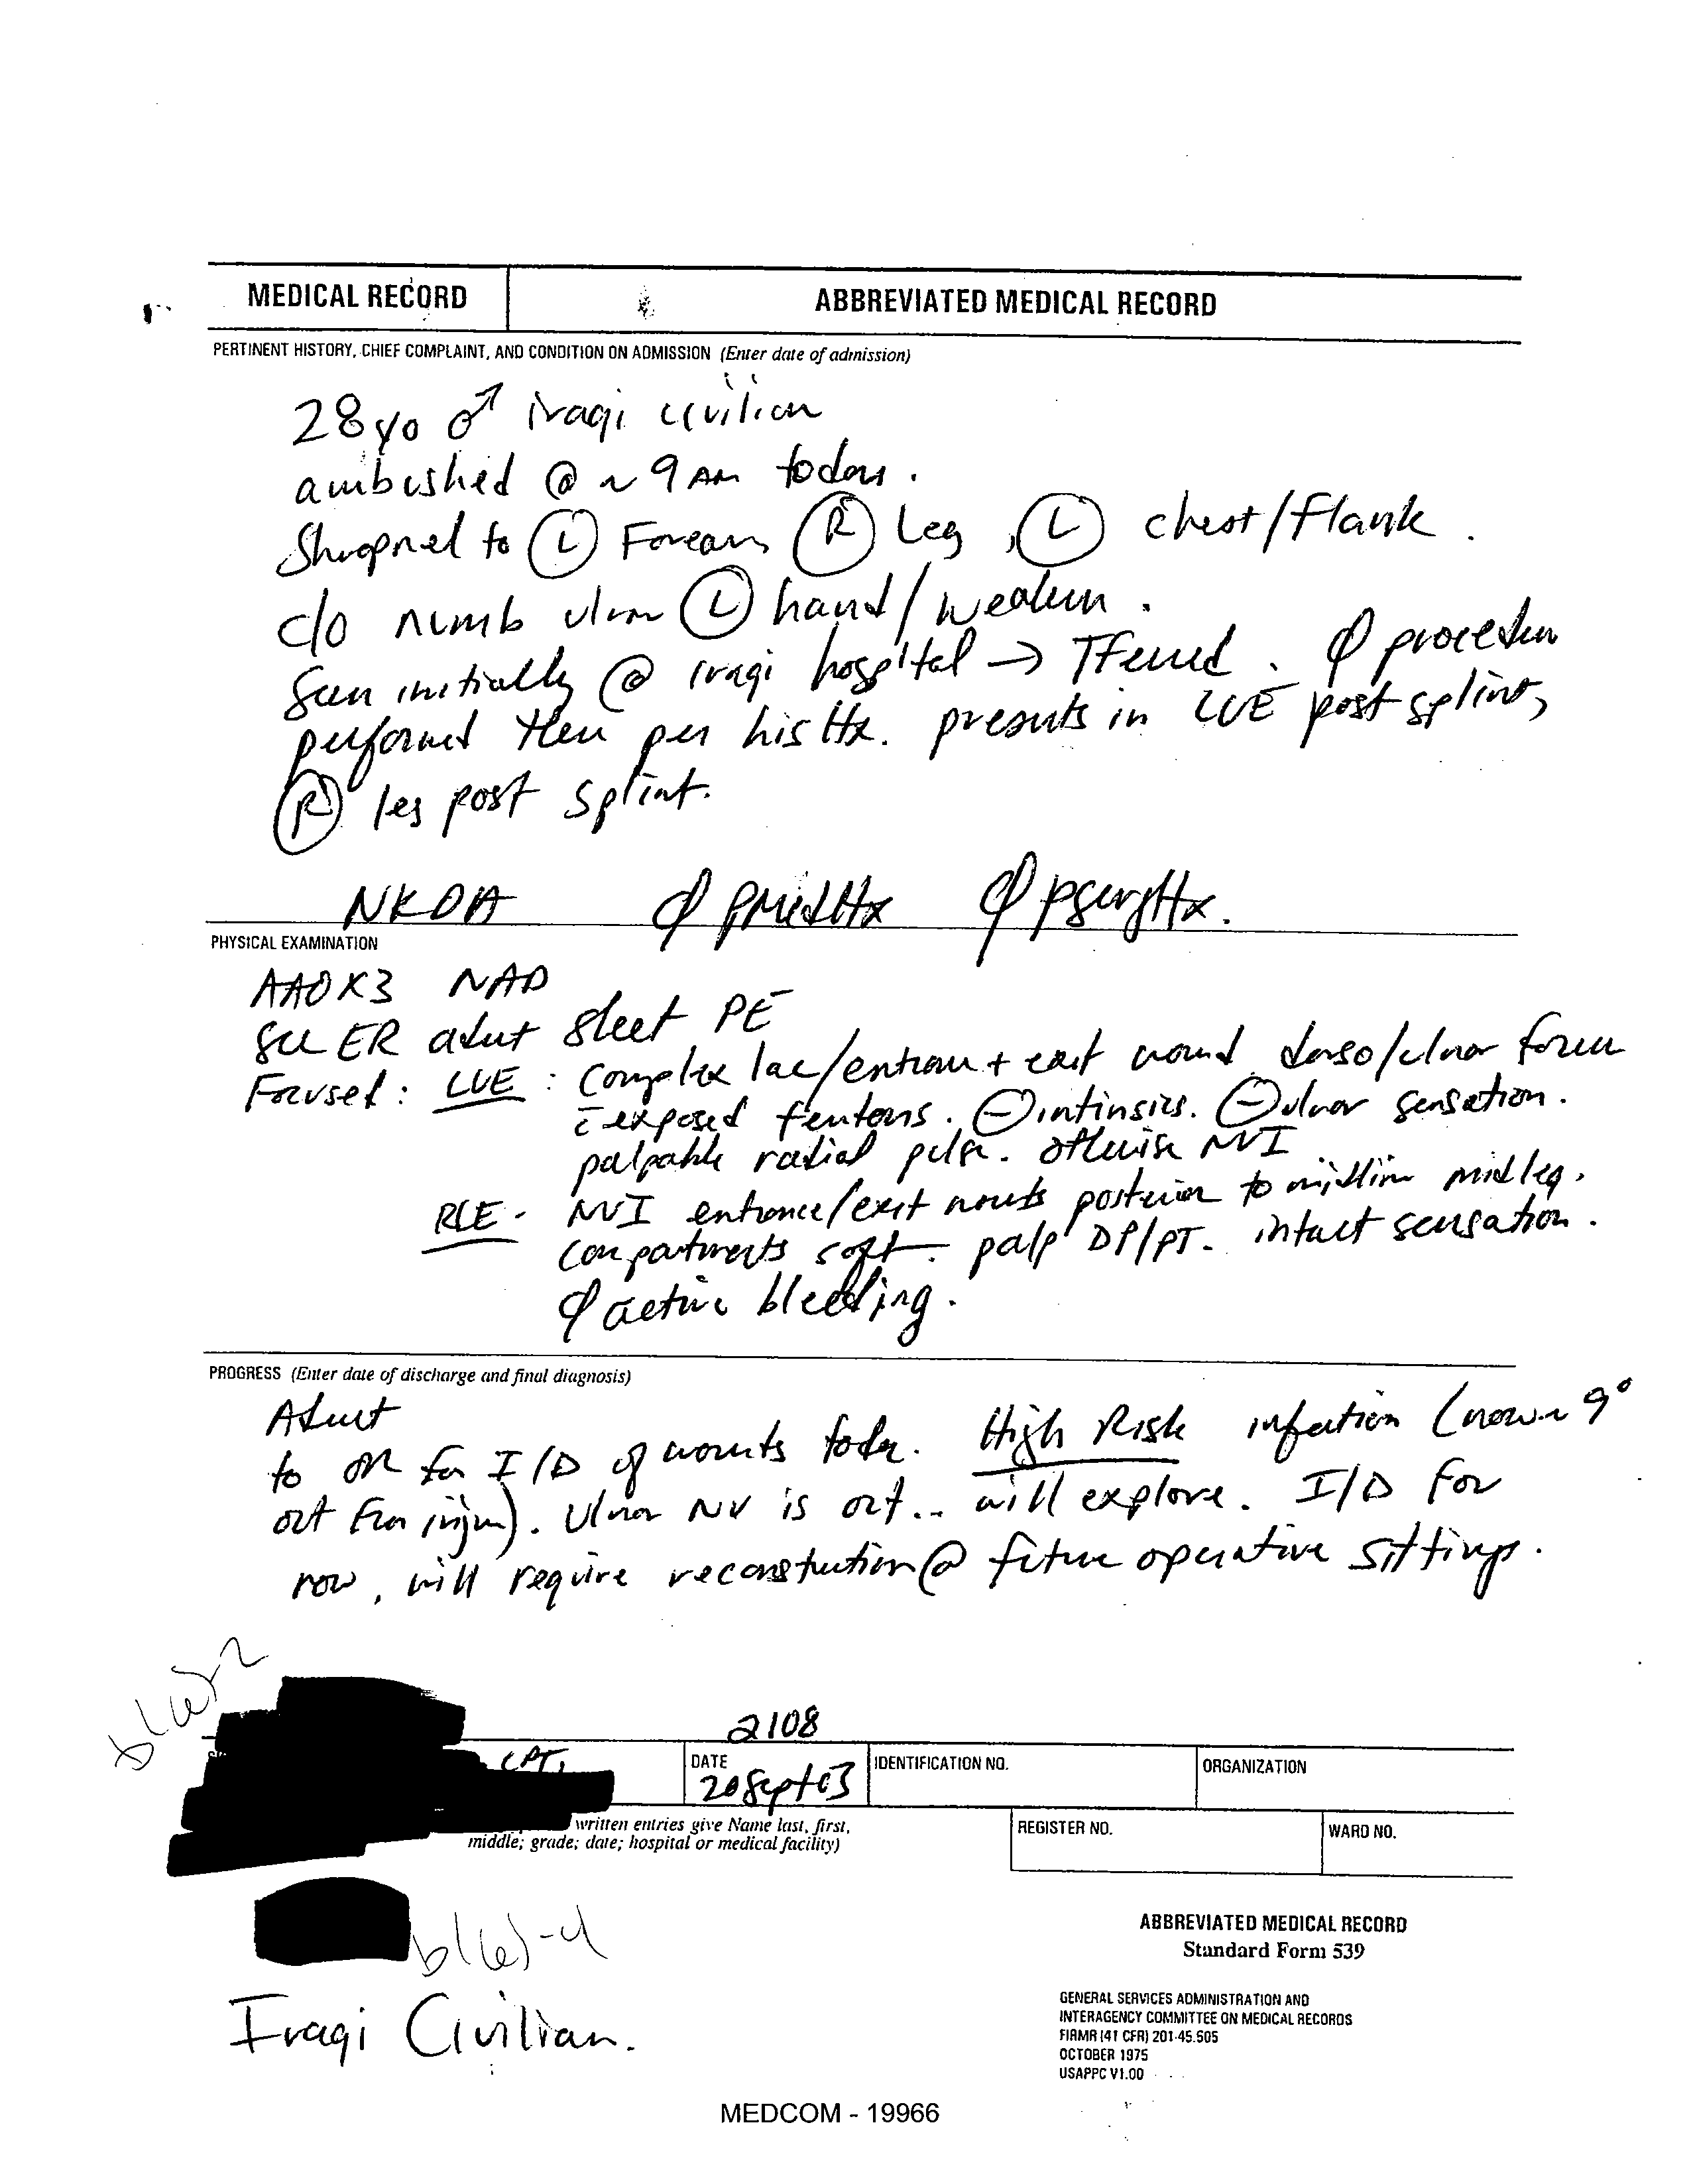 MEDICAL RECORD
ABBREVIATED MEDICAL RECORD
PERTINENT HISTORY, CHIEF COMPLAINT, AND CONDITION ON ADMISSION (Enter date of admission)
28 yo ♂ iraqi civilian
ambushed @ ~ 9 AM today.
Shrapnel to Ⓛ Forearm, Ⓡ Leg, Ⓛ chest/flank.
c/o numb ulnar Ⓛ hand/
Seen initially @ iraqi hospital → Tferred. φ procedure
performed there per his Hx. presents in LUE post splint,
Ⓡ leg post splint.
NKDA φ pmedHx φ psurgHx.
PHYSICAL EXAMINATION
AAOX3 NAD
see ER admit sheet PE
Focused: LUE: Complex lac/entrance + exit wound dorso/ulnar
c̄ exposed tendons. ⊖ intinsics. ⊖ ulnar sensation.
palpable radial pulse. otherwise NVI
RLE - NVI entrance/exit wounds posterior to midline mid leg.
compartments soft. palp DP/PT. intact sensation.
φ active bleeding.
PROGRESS (Enter date of discharge and final diagnosis)
Admit
to OR for I/D of wounds today. High Risk infection (now ~ 9°
out from injury). Ulnar NV is out.. will explore. I/D for
now, will require reconstruction @ future operative sittings.
b(6)-2
2108
CPT,
DATE
20 Sept 03
IDENTIFICATION NO.
ORGANIZATION
written entries give Name last, first,
middle; grade; date; hospital or medical facility)
REGISTER NO.
WARD NO.
b(6)-4
Iraqi Civilian.
ABBREVIATED MEDICAL RECORD
Standard Form 539
GENERAL SERVICES ADMINISTRATION AND
INTERAGENCY COMMITTEE ON MEDICAL RECORDS
FIRMR (41 CFR) 201-45.505
OCTOBER 1975
USAPPC V1.00
MEDCOM - 19966